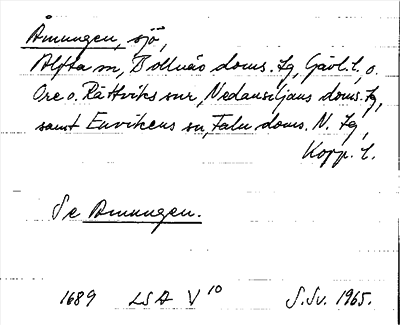 Åmungen, sjö,
Alfta sn, Bollnäs doms. tg, Gävl. l., o.
Ore o. Rättviks snr, Nedansiljans doms. tg,
samt Envikens sn, Falu doms. N. tg,
Kopp. l.
Se Amungen.
1689 LSA V 10 S. Sv. 1965.